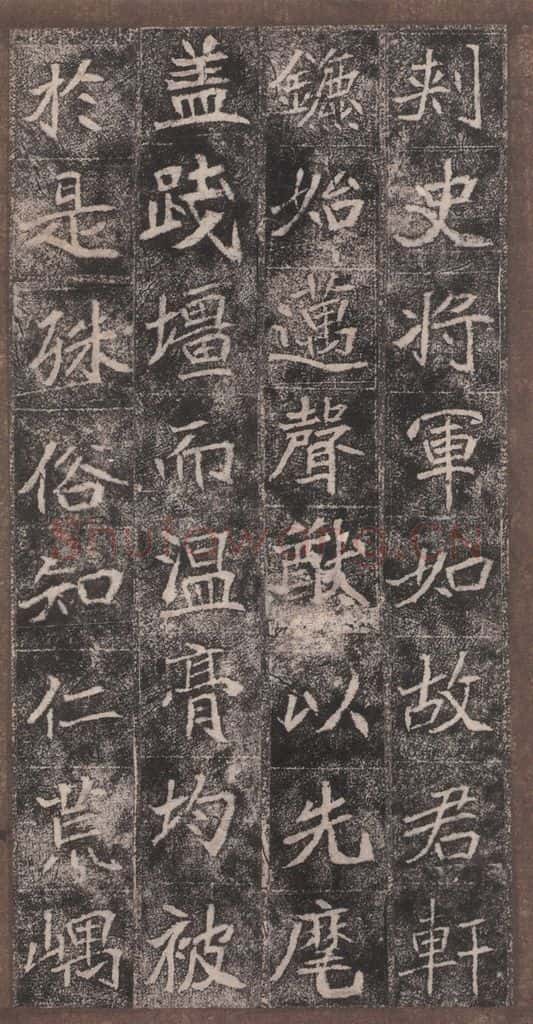 刾史将軍如故君軒
鑣始邁聲猷以先麾
盖踐壃而温膏均被
於是殊俗知仁荒嵎
Shufawang.CN